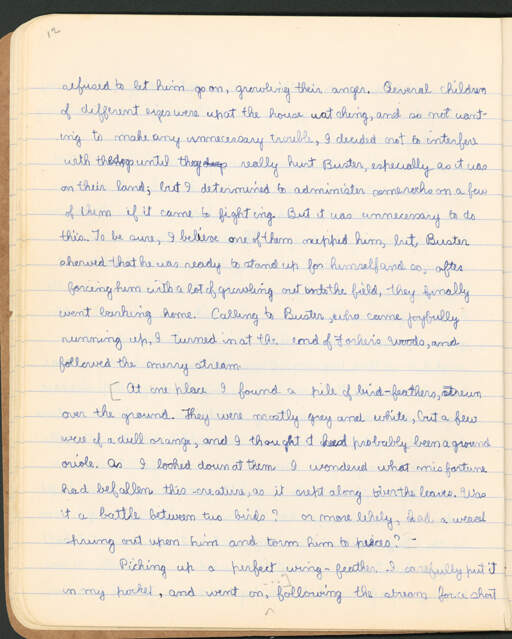 12
refused to let him go on, growling their anger. Several children
of different sizes were upat the house watching, and so not want-
ing to make any unnecessary trouble, I decided not to interfere
with the dogs until they really hurt Buster, especially as it was
on their land; but I determined to administer some rocks on a few
of them if it came to fighting. But it was unnecessary to do
this. To be sure, I believe one of them nipped him, but, Buster
showed that he was ready to stand up for himself and so, after
forcing him with a lot of growling out onto the field, they finally
went barking home. Calling to Buster, who came joyfully
running up, I turned in at the end of Foshi's Woods, and
followed the merry stream
[At one place I found a pile of bird-feathers, strewn
over the ground. They were mostly grey and white, but a few
were of a dull orange, and I thought it had probably been a ground
oriole. As I looked down at them I wondered what misfortune
had befallen this creature, as it crept along over the leaves. Was
it a battle between two birds? or more likely, had a weasel
sprung out upon him and torn him to pieces? -
Picking up a perfect wing-feather I carefully put it
in my pocket, and went on, following the stream for a short